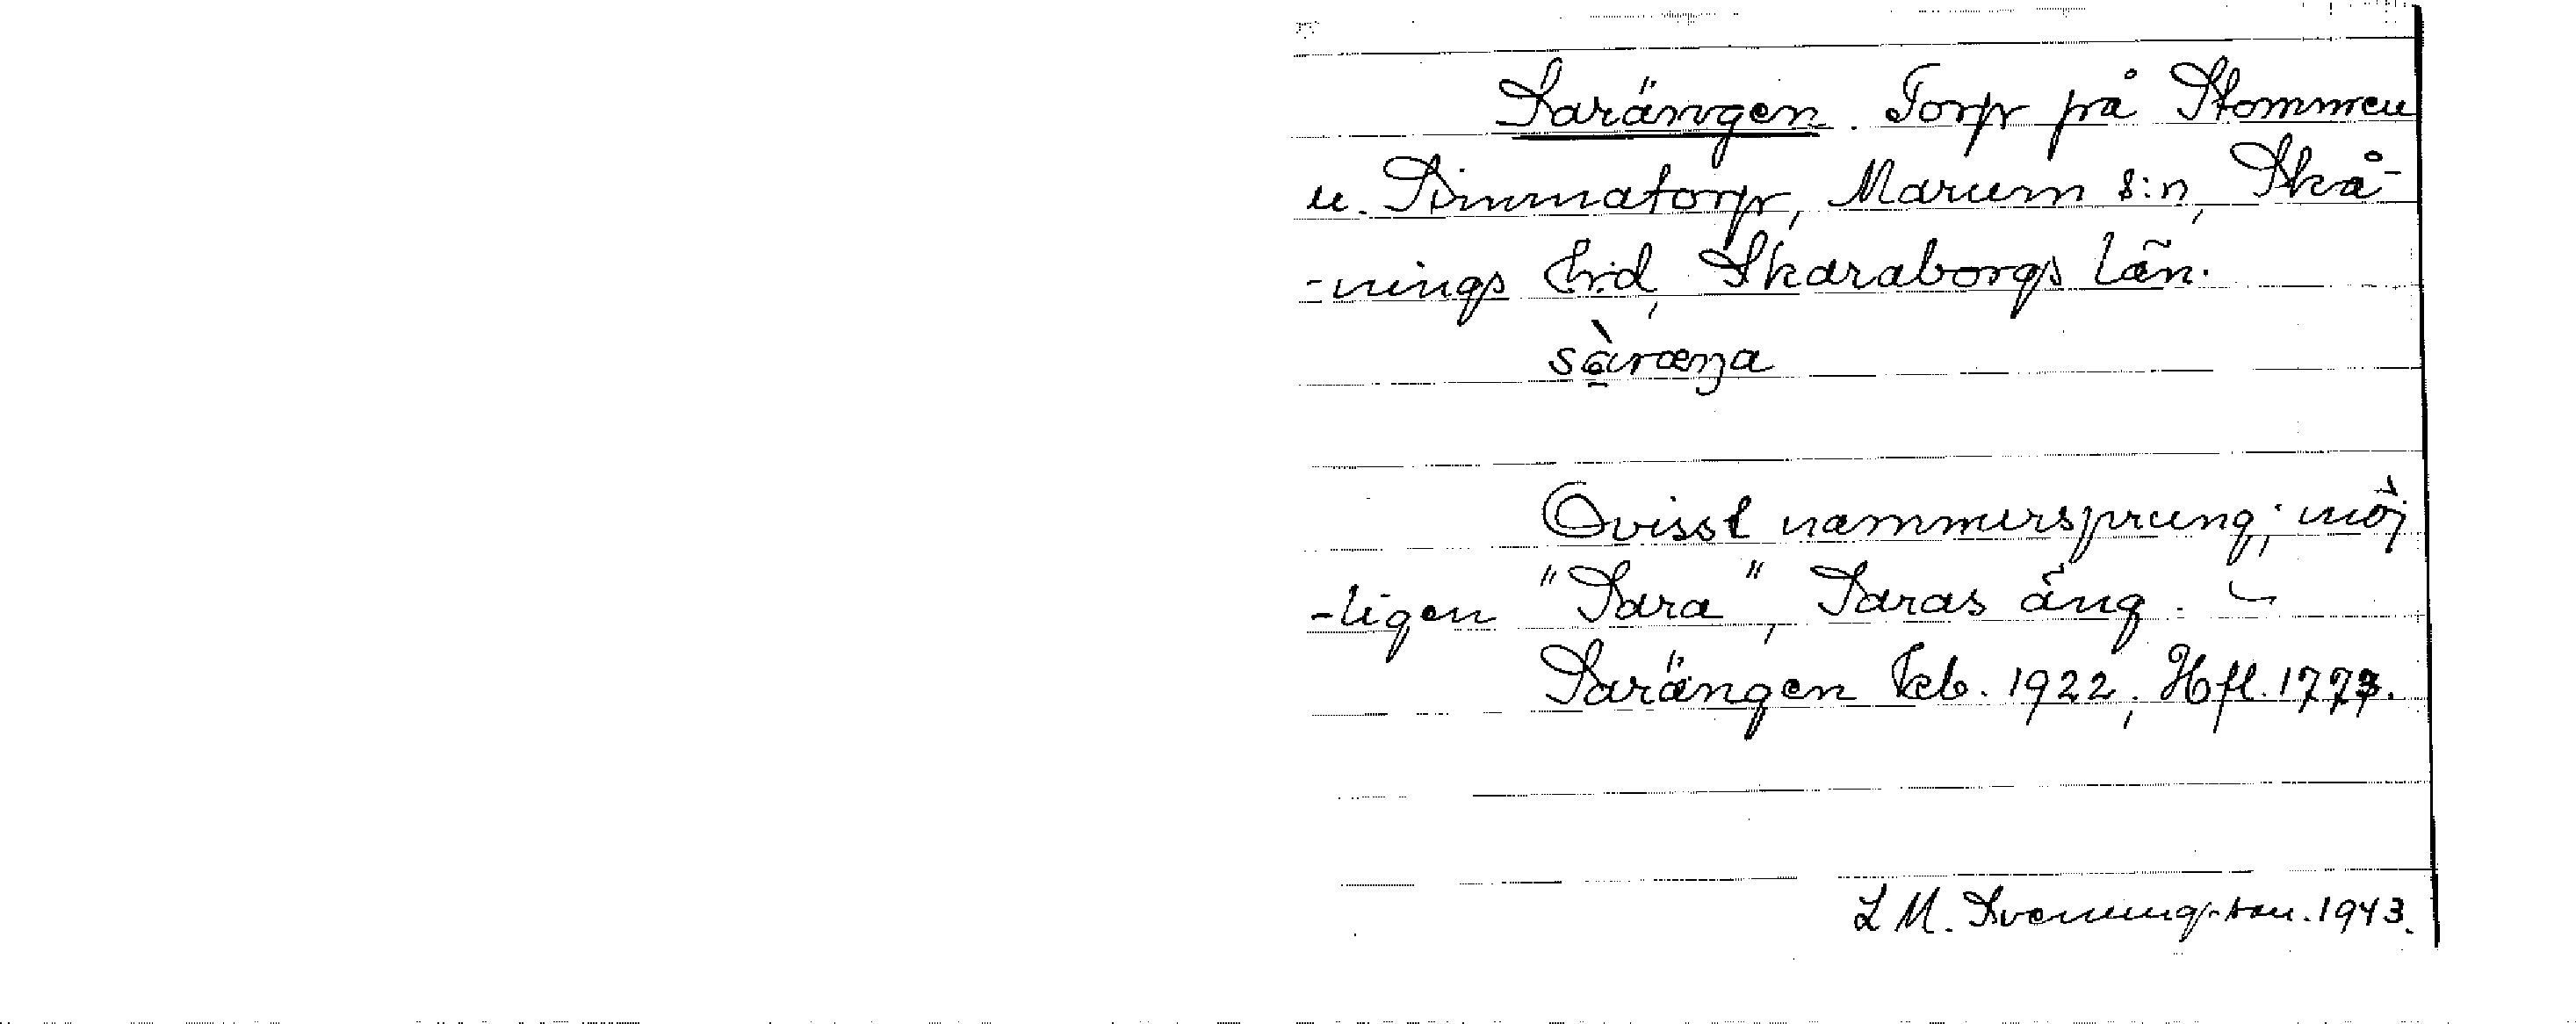 Sarängen. Torp på Stommen
u. Simmatorp, Marum s:n, Skå-
-nings h:d, Skaraborgs län.
sàræŋa
Ovisst namnursprung; möj
-ligen "Sara", Saras äng.
Sarängen Jeb. 1922, Hfl. 1773.
L M. Svenungsson. 1943.